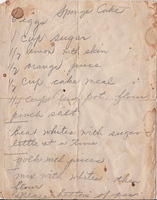 Sponge Cake
7 eggs
1 cup sugar
1/2 lemon with skin
1/2 orange juice
1/2 cup cake meal
1/4 cup pot. flour
pinch salt
beat whites with sugar
little at a time
yolk with juices
mix with whites
flour
bottom of pan